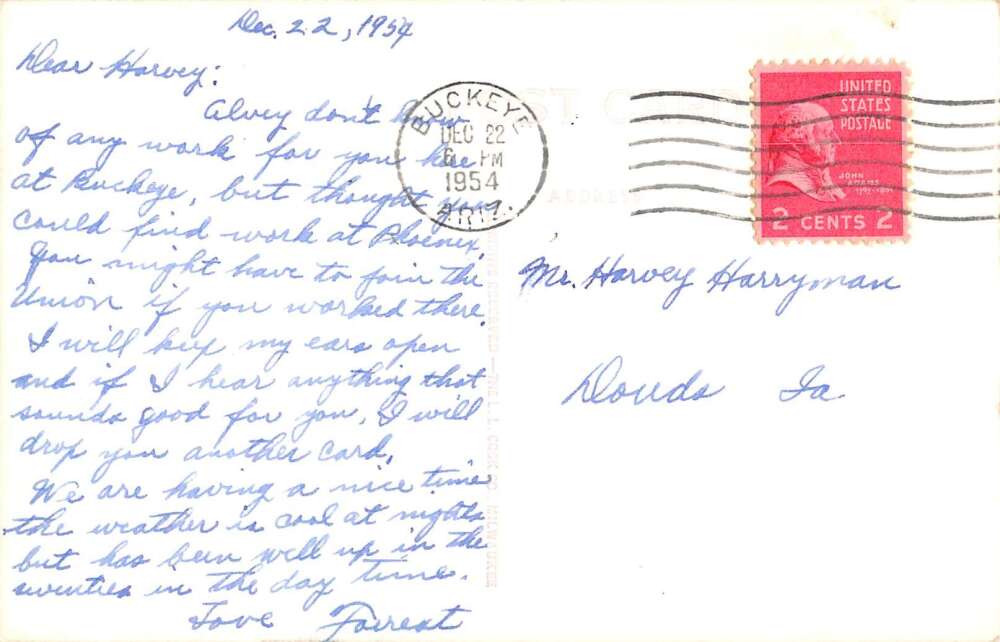 Dec. 22, 1954
Dear Harvey:
Alvey don't know
of any work for you here
at Buckeye, but thought you
could find work at Phoenix.
You might have to join the
Union if you worked there.
I will keep my ears open
and if I hear anything that
sounds good for you, I will
drop you another card.
We are having a nice time
the weather is cool at nights
but has been well up in the
seventies in the day time.
Love Forrest
BUCKEYE
DEC 22
6 PM
1954
ARIZ.
UNITED
STATES
POSTAGE
JOHN
ADAMS
2 CENTS 2
ADDRESS
Mr. Harvey Harryman
Douds Ia.